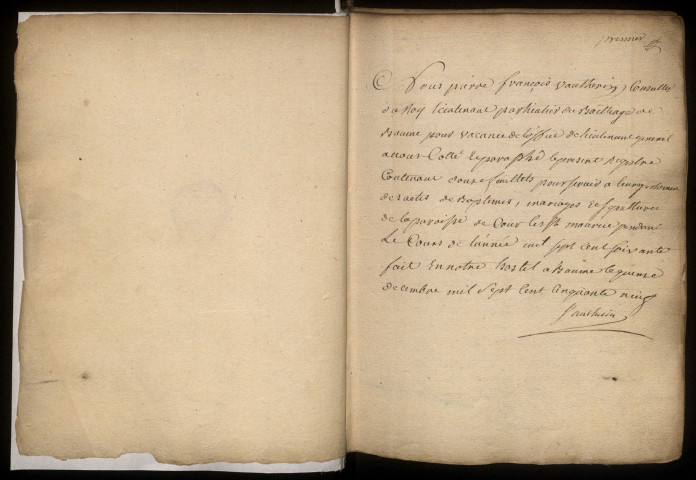 premier
Nous pierre françois vautherin, Conseiller
du Roy lieutenant particulier au Bailliage de
Baume pour vacance de l'office de lieutenant general
avons Cotté et paraphé le present Registre
Contenant douze feuillets pour servir a
des actes de Baptemes, mariages et sepultures
de la paroisse de Cour les st maurice pendant
Le Cours de l'année mil sept cent soixante
fait En notre hostel a Baume le quinze
decembre mil sept cent cinquante neuf
Vautherin